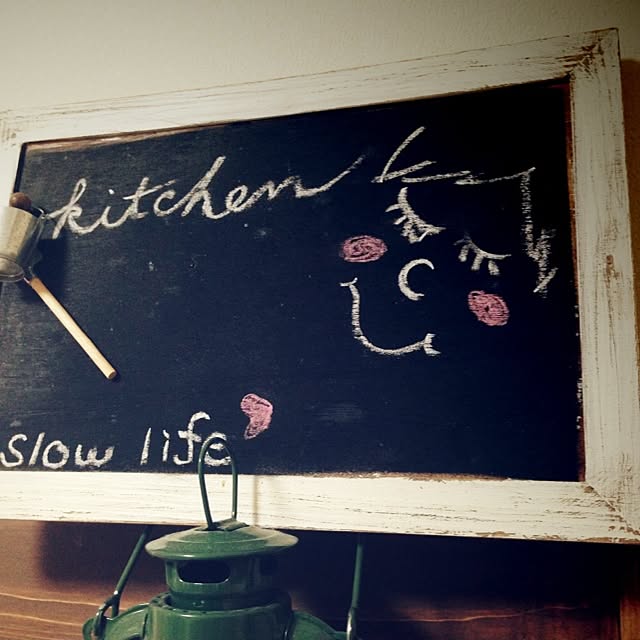 kitchen
slow life